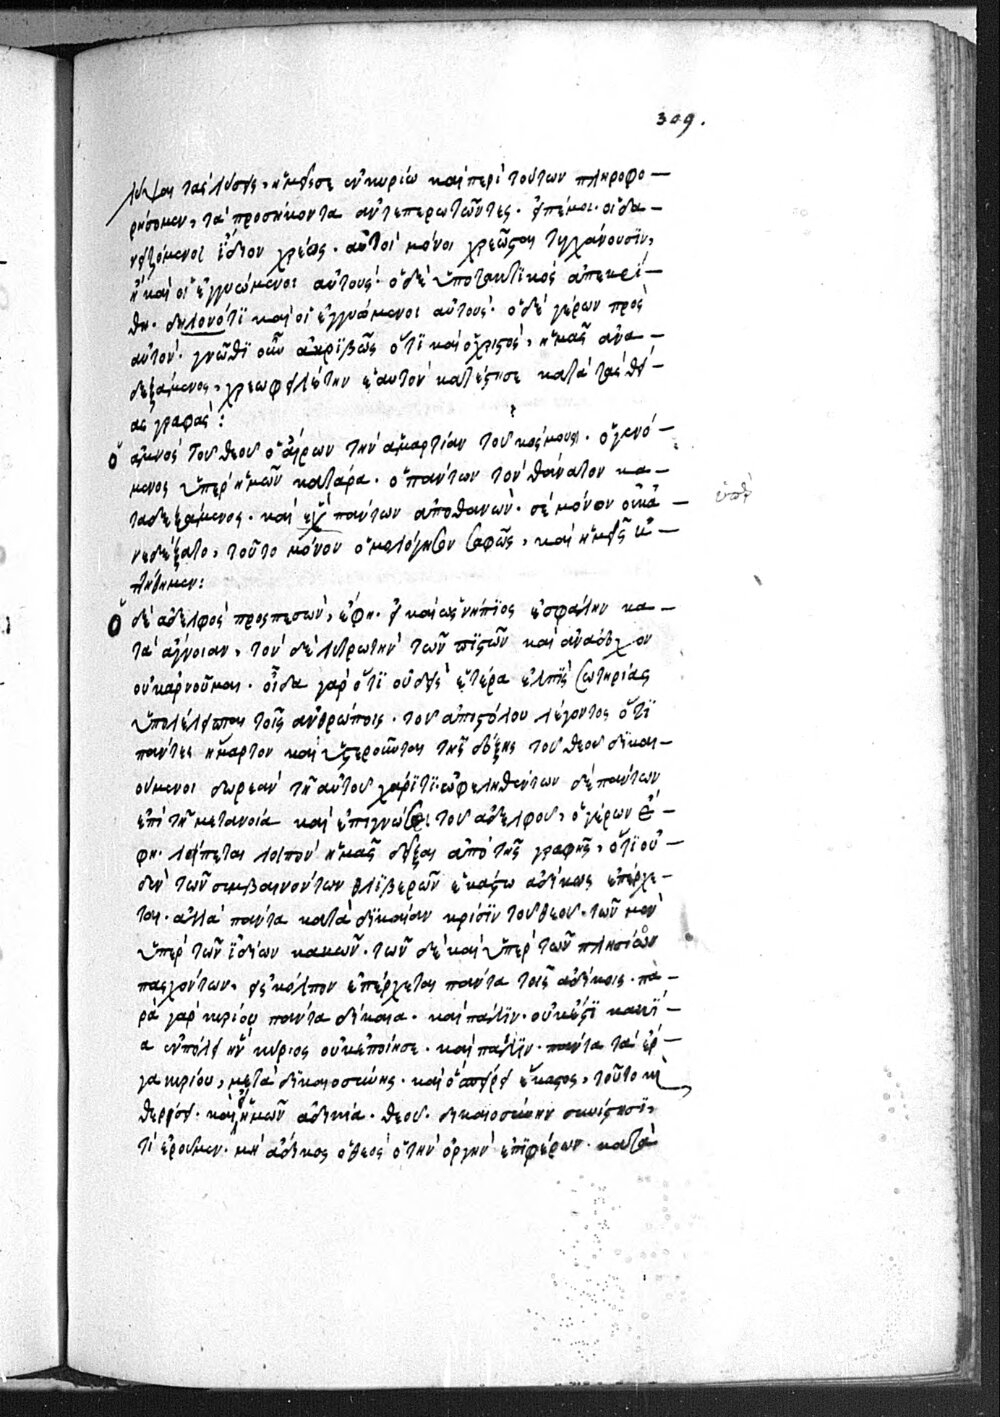 309.
λῦψαι τὰς λύσεις, ἡμεῖς σε ἐν κυρίω καὶ περὶ τούτων πληροφο-
ρήσομεν, τὰ προσήκοντα ἀντεπερωτῶντες. εἰπέ μοι. οἱ δα-
νειζόμενοι ἴδιον χρέως. αὐτοὶ μόνοι χρεῶσται τυγχάνουσϊν,
ἢ καὶ οἱ ἐγγυώμενοι αὐτούς. ὁ δὲ ὑποτακτϊκὸς ἀπεκρί-
θη. δηλονότϊ καὶ οἱ ἐγγυώμενοι αὐτούς. ὁ δὲ γέρων πρὸς
αὐτόν. γνῶθϊ οὖν ἀκρϊβῶς ὅτϊ καὶ ὁ χριστὸς, ἡμᾶς ἀνα-
δεξάμενος, χρεωφειλέτην ἑαυτὸν κατέστησε κατὰ τὰς θεί-
ας γραφάς:
ὁ ἀμνὸς τοῦ θεοῦ ὁ αἴρων τὴν ἁμαρτίαν τοῦ κόσμου. ὁ γενό-
μενος ὑπὲρ ἡμῶν κατάρα. ὁ πάντων τὸν θάνατον κα-
ταδεξάμενος. καὶ ὑπὲρ πάντων ἀποθανών. σὲ μόνον οὐκ ἀ-
νεδέξατο, τοῦτο μόνον ὁμολόγησον σαφῶς, καὶ ἡμεῖς
ὁ δὲ ἀδελφὸς προσπεσών, ἔφη. εἰ καὶ ὡς νήπϊος ἐσφάλην κα-
τὰ ἄγνοιαν, τὸν δὲ λυτρωτὴν τῶν πϊστῶν καὶ ἀνάδοχον
οὐκ ἀρνοῦμαι. οἶδα γὰρ ὅτϊ οὐδεὶς ἑτέρα ἐλπὶς σωτηρίας
ὑπολέλειπται τοῖς ἀνθρώποις. τοῦ ἀποστόλου λέγοντος ὅτϊ
πάντες ἥμαρτον καὶ ὑστεροῦνται τῆς δόξης τοῦ θεοῦ δϊκαι-
ούμενοι δωρεὰν τῆ αὐτοῦ χάρϊτϊ. ὠφεληθέντων δὲ πάντων
ἐπὶ τῆ μετανοία καὶ ἐπιγνώσει τοῦ ἀδελφοῦ, ὁ γέρων ἔ-
φη. λείπεται λοιπὸν ἡμᾶς δεῖξαι ἀπὸ τῆς γραφῆς, ὅτϊ οὐ-
δὲν τῶν συμβαινόντων θλϊβερῶν ἑκάστω ἀδίκως ἐπέρχε-
ται. ἀλλὰ πάντα κατὰ δϊκαίαν κρίσϊν τοῦ θεοῦ. τῶν μὲν
ὑπὲρ τῶν ἰδίων κακῶν. τῶν δὲ καὶ ὑπὲρ τῶν πλησίον
πασχόντων, εἰς κόλπον ἐπέρχεται πάντα τοῖς ἀδίκοις. πα-
ρὰ γὰρ κυρίου πάντα δίκαια. καὶ πάλϊν. οὐκ ἔστϊ κακϊ-
α ἐν πόλει ἣν κύριος οὐκ ἐποίησε. καὶ πάλϊν. πάντα τὰ ἔρ-
γα κυρίου, μετὰ δϊκαιοσύνης. καὶ ὃ σπείρει ἕκαστος, τοῦτο κὶ
θερίσει. καὶ εἰ ἡμῶν ἀδικία. θεοῦ. δικαιοσύνην συνίστησϊ,
τί ἐροῦμεν. μὴ ἄδικος ὁ θεὸς ὁ τὴν ὀργὴν ἐπϊφέρων. κατὰ